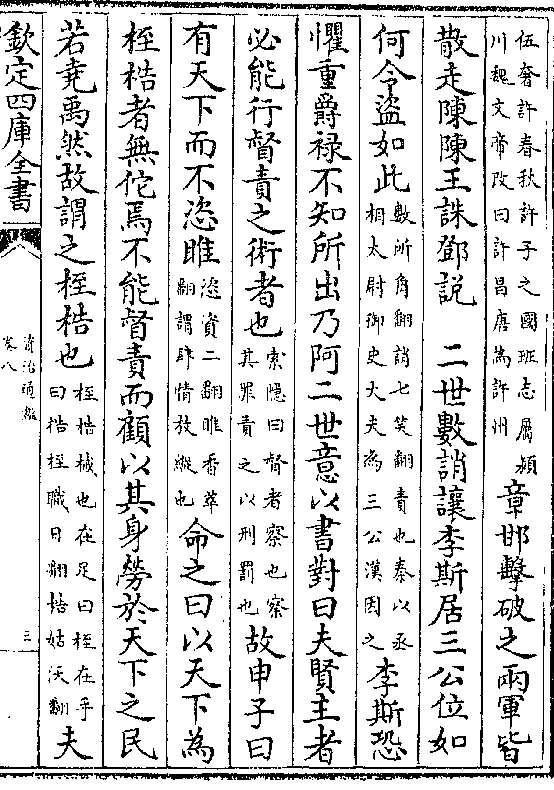 伍奢許春秋許子之國班志屬潁
川魏文帝改曰許昌唐為許州
章邯擊破之兩軍皆
散走陳陳王誅鄧說　二世數誚讓李斯居三公位如
何令盜如此
數所角翻誚七笑翻責也秦以丞
相太尉御史大夫為三公漢因之
李斯恐
懼重爵祿不知所出乃阿二世意以書對曰夫賢主者
必能行督責之術者也
索隱曰督者察也察
其罪責之以刑罰也
故申子曰
有天下而不恣睢
恣資二翻睢香萃
翻謂肆情放縱也
命之曰以天下為
桎梏者無佗焉不能督責而顧以其身勞於天下之民
若堯禹然故謂之桎梏也
桎梏械也在足曰桎在手
曰梏桎職日翻梏姑沃翻
夫
欽定四庫全書
資治通鑑
卷八
三